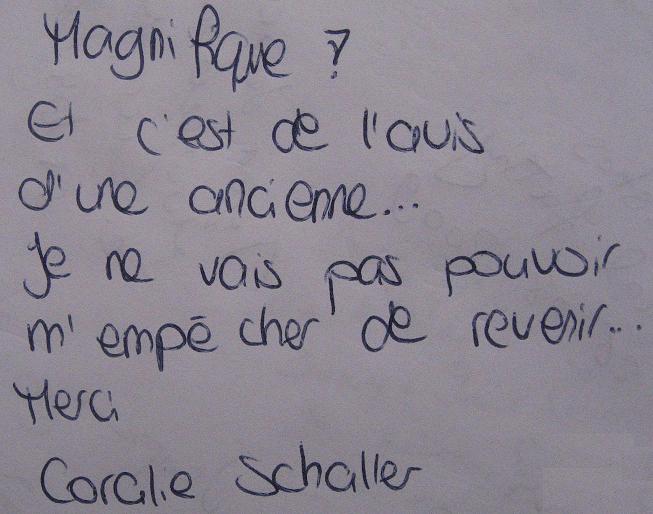 Magnifique ?
Et c'est de l'avis
d'une ancienne...
Je ne vais pas pouvoir
m'empêcher de revenir...
Merci
Coralie Schaller